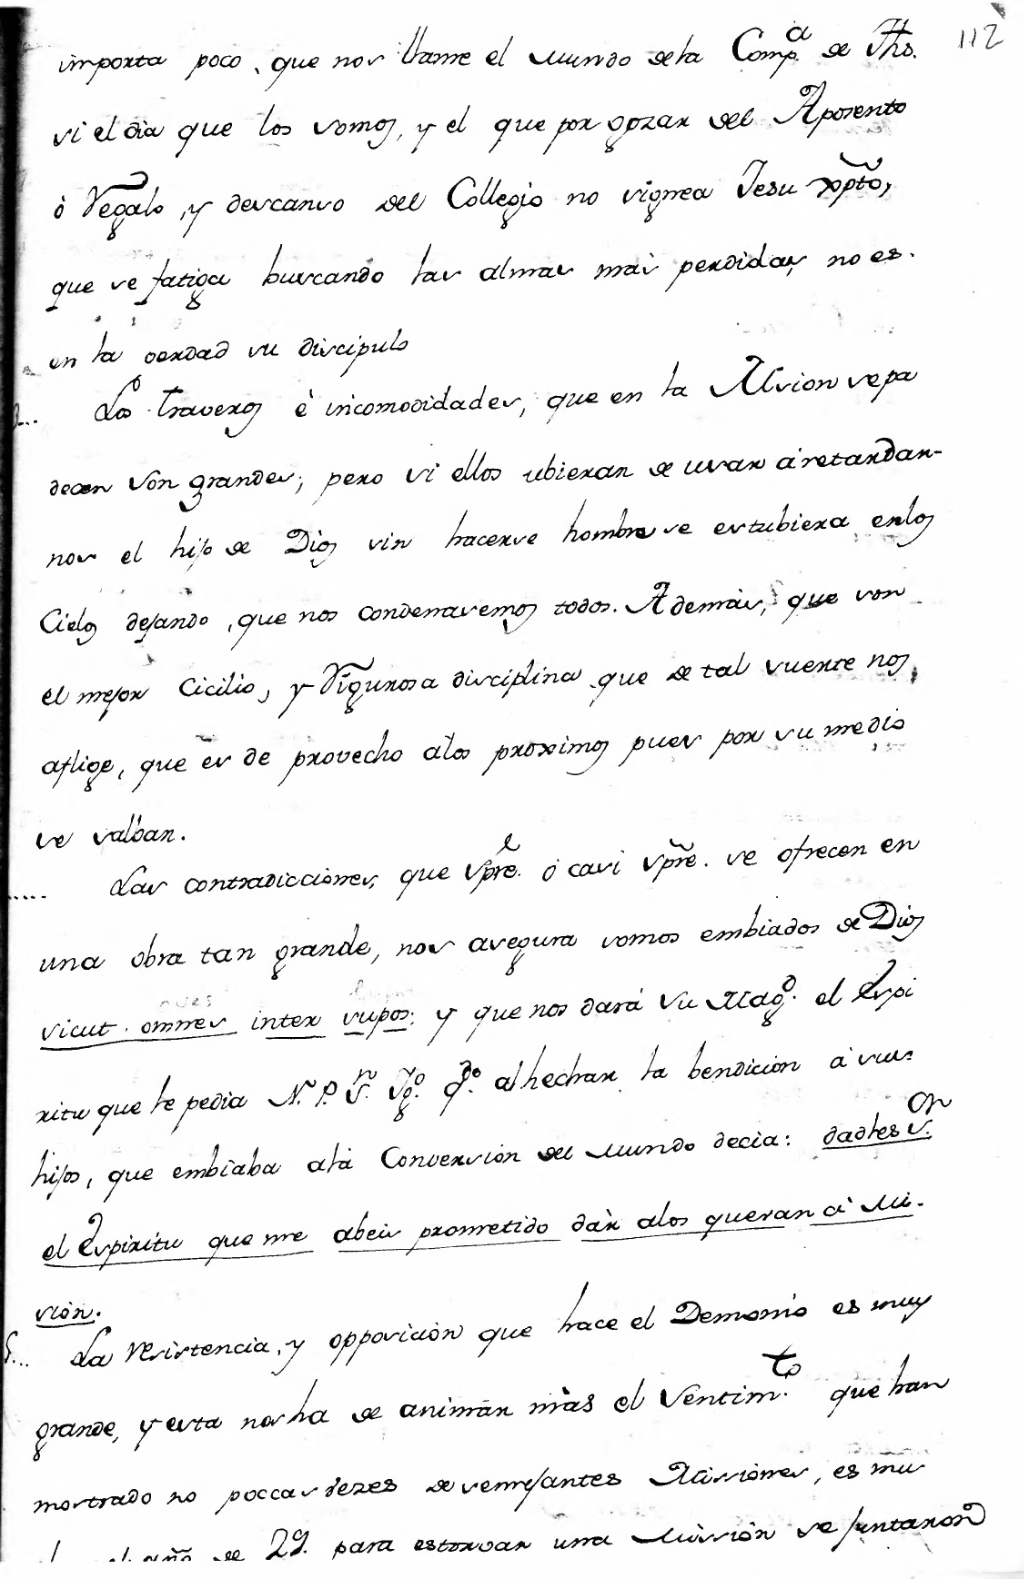 112
importa poco, que nos llame el mundo dela Compª. de Jhs.
si el dia que los somos, y el que por gozar del Aposento
ò Regalo, y descanso del Collegio no signea Jesu xpto,
que se fatiga buscando las almas mas perdidas, no es.
en la verdad su discipulo
Los Traversos è incomodidades, que en la Mision se pa
decen son grandes; pero si ellos ubieran de usar à retardar-
nos el hijo de Dios sin hacerse hombre se estubiera enlos
Cielos dejando, que nos condenasemos todos. Ademàs, que son
el mejor Cicilio, y Rigurosa disciplina que de tal suerte nos
aflige, que es de provecho alos proximos pues por su medio
se salban.
Las contradicciones, que spre. ò casi spre. se ofrecen en
una obra tan grande, nos asegura somos embiados de Dios
sicut omnes inter lupos: y que nos darà su Magd. el Espi
ritu que le pedia N. P. Sn. Igo. qdo. al hechar la bendicion à sus
hijos, que embiaba alà Conversion del mundo decia: dadles Sor.
el Espiritu que me abeis prometido dàr alos que van à Mi-
sion.
5... La resistencia, y opposicion que hace el Demonio es muy
grande, y esta nos ha de animar màs el sentimto. que han
mostrado no poccas vezes de semejantes Missiones, es mu
el año de 29. para estorvar una Missiòn se juntaron